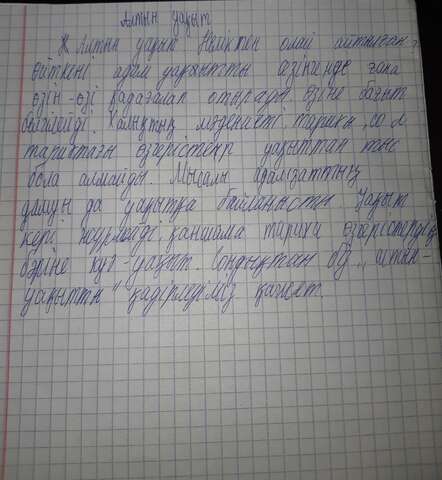 Алтын уақыт
Алтын уақыт Неліктен олай айтылған?
Өйткені адам уақытты өзінінде ғана
өзін-өзі қадағалап отырады өзіне бағыт
белгілейді. Халықтың мәдениеті, тарихы, со л
тарихтағы өзерістеңр уақыттан тыс
бола алмайды. Мысалы адамзаттың
дамуы да уақытқа байланысты Уақыт
кері жүрмейді, қаншама тарихи өзерістердің
бәріне куә-уақыт. Сондықтан біз „алтын-
уақытты" қадірлеуіміз қажет.